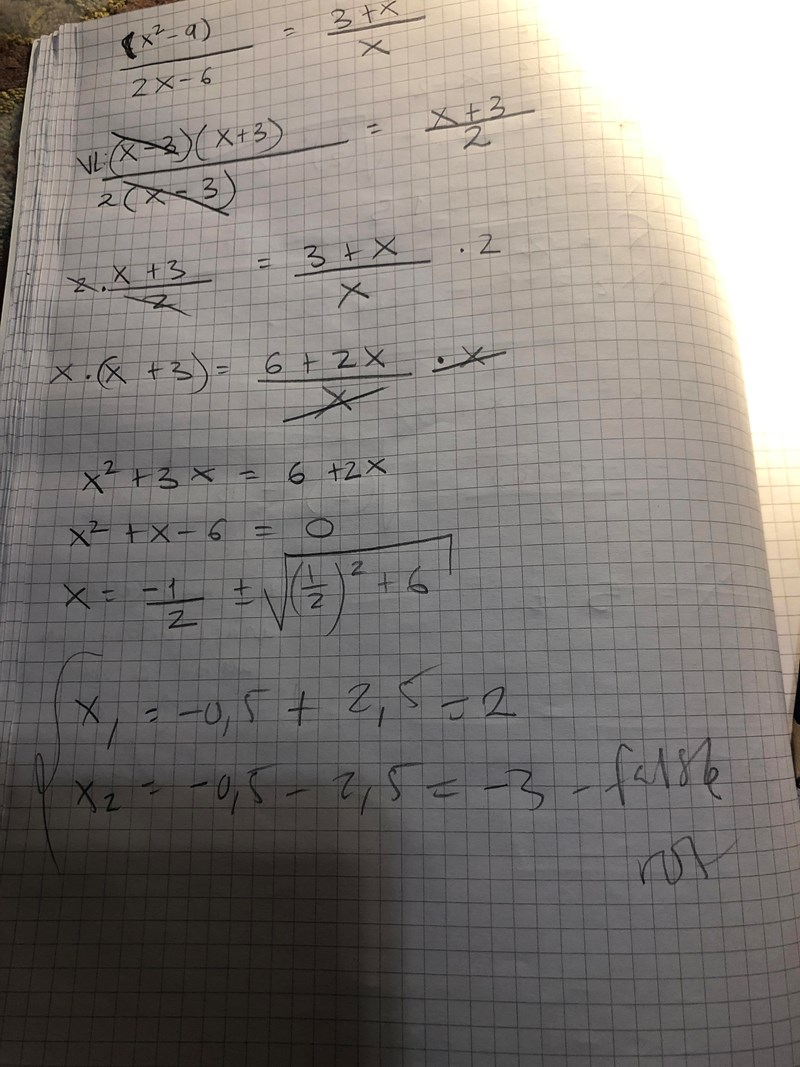 (x² - 9) / 2x - 6 = 3 + x / x
VL: (x - 3)(x + 3) / 2(x - 3) = x + 3 / 2
2 · x + 3 / 2 = 3 + x / x · 2
x · (x + 3) = 6 + 2x / x · x
x² + 3x = 6 + 2x
x² + x - 6 = 0
x = -1/2 ± √(1/2)² + 6
x₁ = -0,5 + 2,5 = 2
x₂ = -0,5 - 2,5 = -3 - falsk
rot